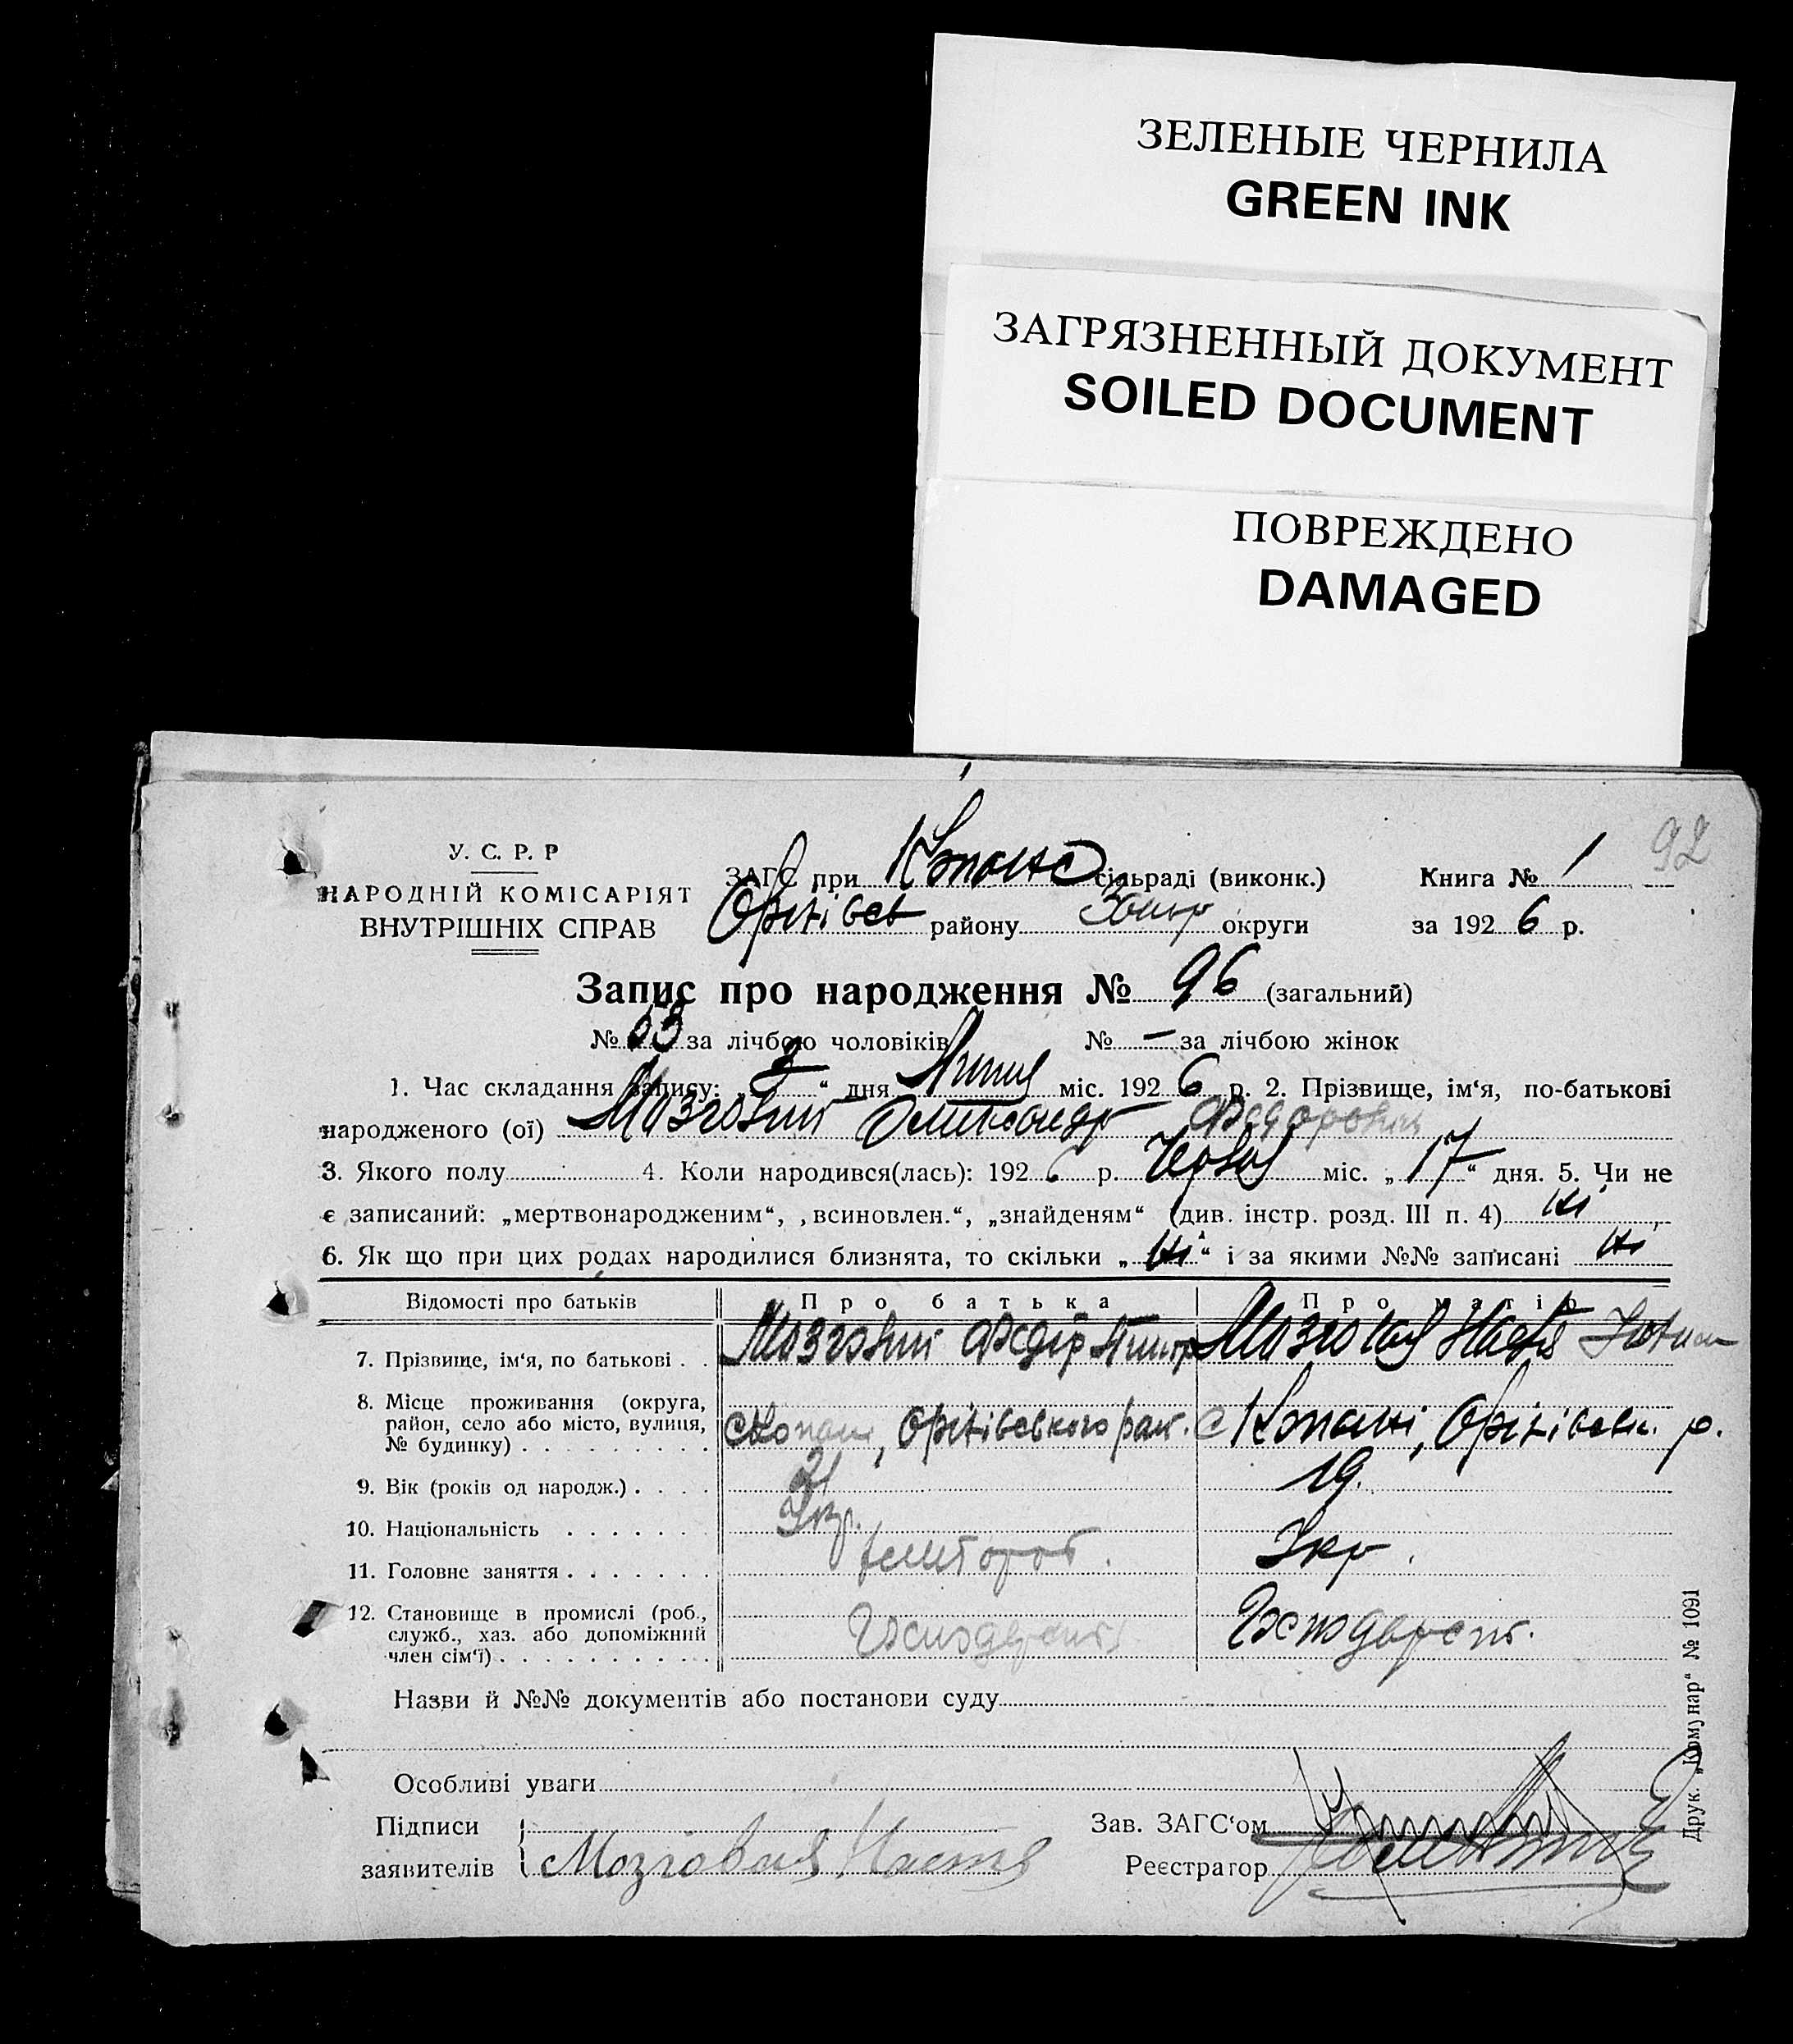 ЗЕЛЕНЫЕ ЧЕРНИЛА
GREEN INK
ЗАГРЯЗНЕННЫЙ ДОКУМЕНТ
SOILED DOCUMENT
ПОВРЕЖДЕНО
DAMAGED
92
У. С. Р. Р
НАРОДНІЙ КОМІСАРІЯТ
ВНУТРІШНІХ СПРАВ
ЗАГС при сільраді (виконк.) Книга № 1
Оріхівськ району Запор округи за 1926 р.
Запис про народження № 96 (загальний)
№ 53 за лічбою чоловіків № — за лічбою жінок
1. Час складання запису: „ 2 “ дня Липня міс. 1926 р. 2. Прізвище, ім‘я, по-батькові
народженого (ої) Мозговий Олександр Федорович
3. Якого полу 4. Коли народився(лась): 1926 р. Червня міс. „ 17 “ дня. 5. Чи не
є записаний: „мертвонародженим“, „всиновлен.“, „знайденям“ (див. інстр. розд. III п. 4) ні
6. Як що при цих родах народилися близнята, то скільки „ ні “ і за якими №№ записані ні
Відомості про батьків Про батька Про матір
7. Прізвище, ім‘я, по батькові . . Мозговий Федір Мозговая Настя
8. Місце проживання (округа, район, село або місто, вулиця, № будинку) . . . с Копані, Оріхівського рай. с Копані, Оріхівськ. р.
9. Вік (років од народж.) . . . . 21 19.
10. Національність . . . . . . Укр. Укр.
11. Головне заняття . . . . . . хлібороб.
12. Становище в промислі (роб., служб., хаз. або допоміжний член сім‘ї) . . . Господарст. Господарст.
Назви й №№ документів або постанови суду
Особливі уваги
Підписи
заявителів Мозговая Настя
Зав. ЗАГС‘ом
Реєстратор
Друк. „Комунар“ № 1091